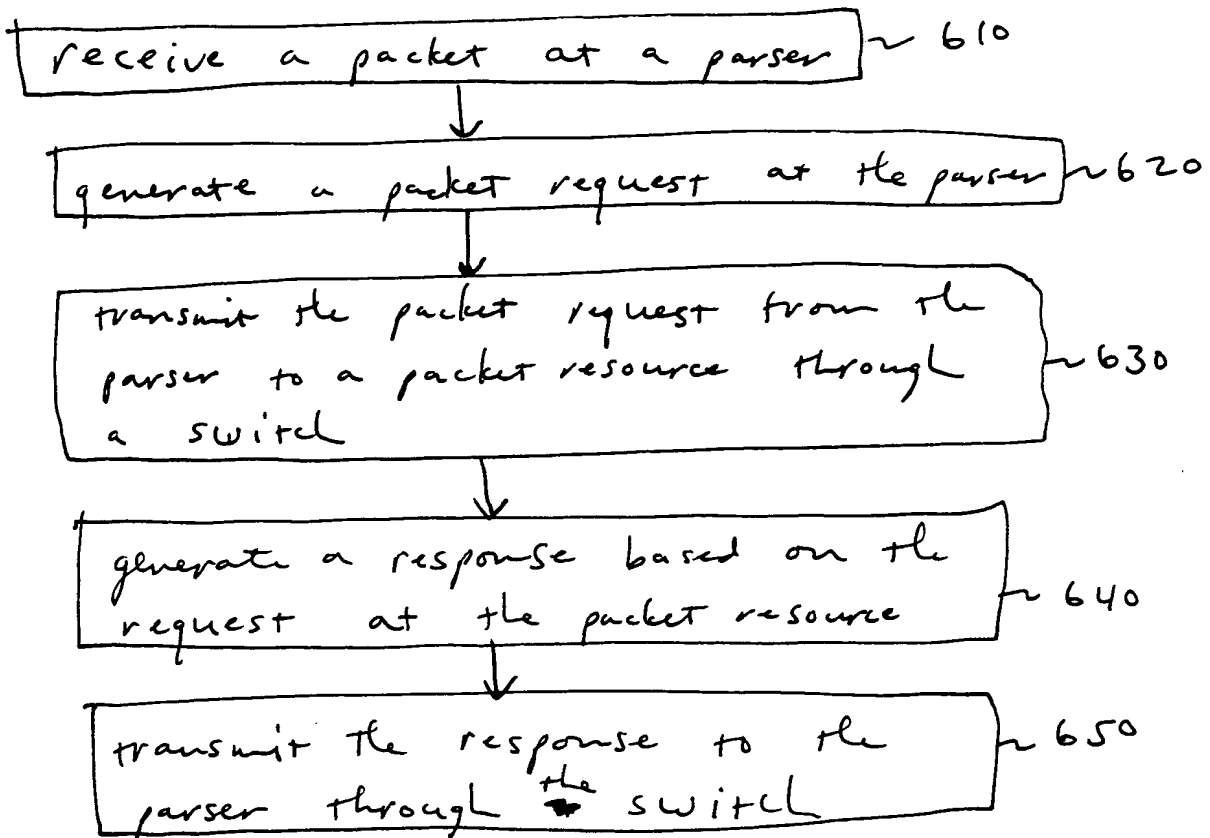 receive a packet at a parser ~ 610
generate a packet request at the parser ~ 620
transmit the packet request from the
parser to a packet resource through ~ 630
a switch
generate a response based on the
request at the packet resource ~ 640
transmit the response to the ~ 650
parser through the switch